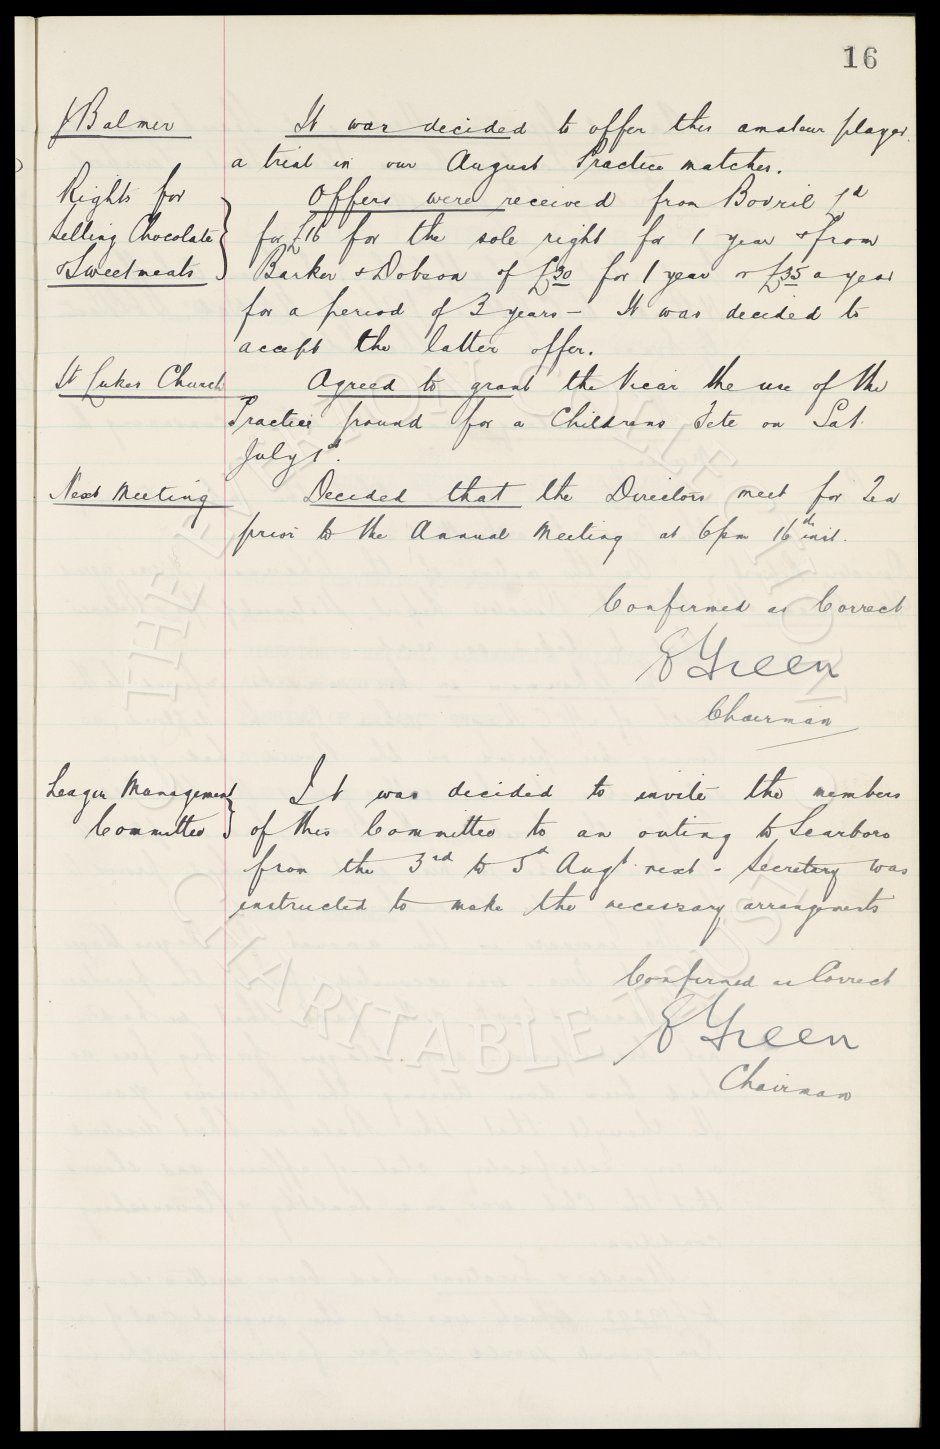 16
J Balmer It was decided to offer this amateur player
a trial in our August Practice matches.
Rights for Offers were received from Bovril Ld
Selling Chocolate for £16 for the sole right for 1 year & from
& Sweetmeats Barker & Dobson of £30 for 1 year or £35 a year
for a period of 3 years — It was decided to
accept the latter offer.
St Lukes Church Agreed to grant the Vicar the use of the
Practice ground for a Childrens Fete on Sat
July 1st.
Next Meeting Decided that the Directors meet for Tea
prior to the Annual Meeting at 6pm 16th inst.
Confirmed as Correct
E Green
Chairman
League Management It was decided to invite the members
Committee of this Committee to an outing to Scarboro
from the 3rd to 5th Augt next - Secretary was
instructed to make the necessary arrangements
Confirmed as Correct
E Green
Chairman
THE EVERTON COLLECTION
CHARITABLE TRUST